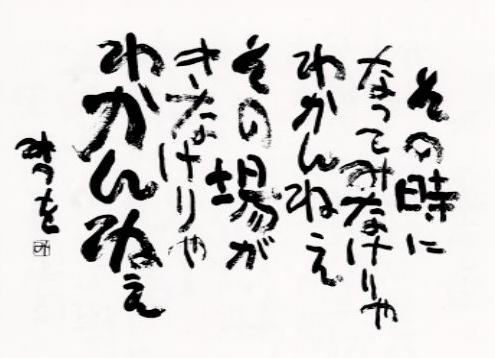 その時に
なってみなけりゃ
わかんねえ
その場が
きなけりゃ
わかんねえ
みつを